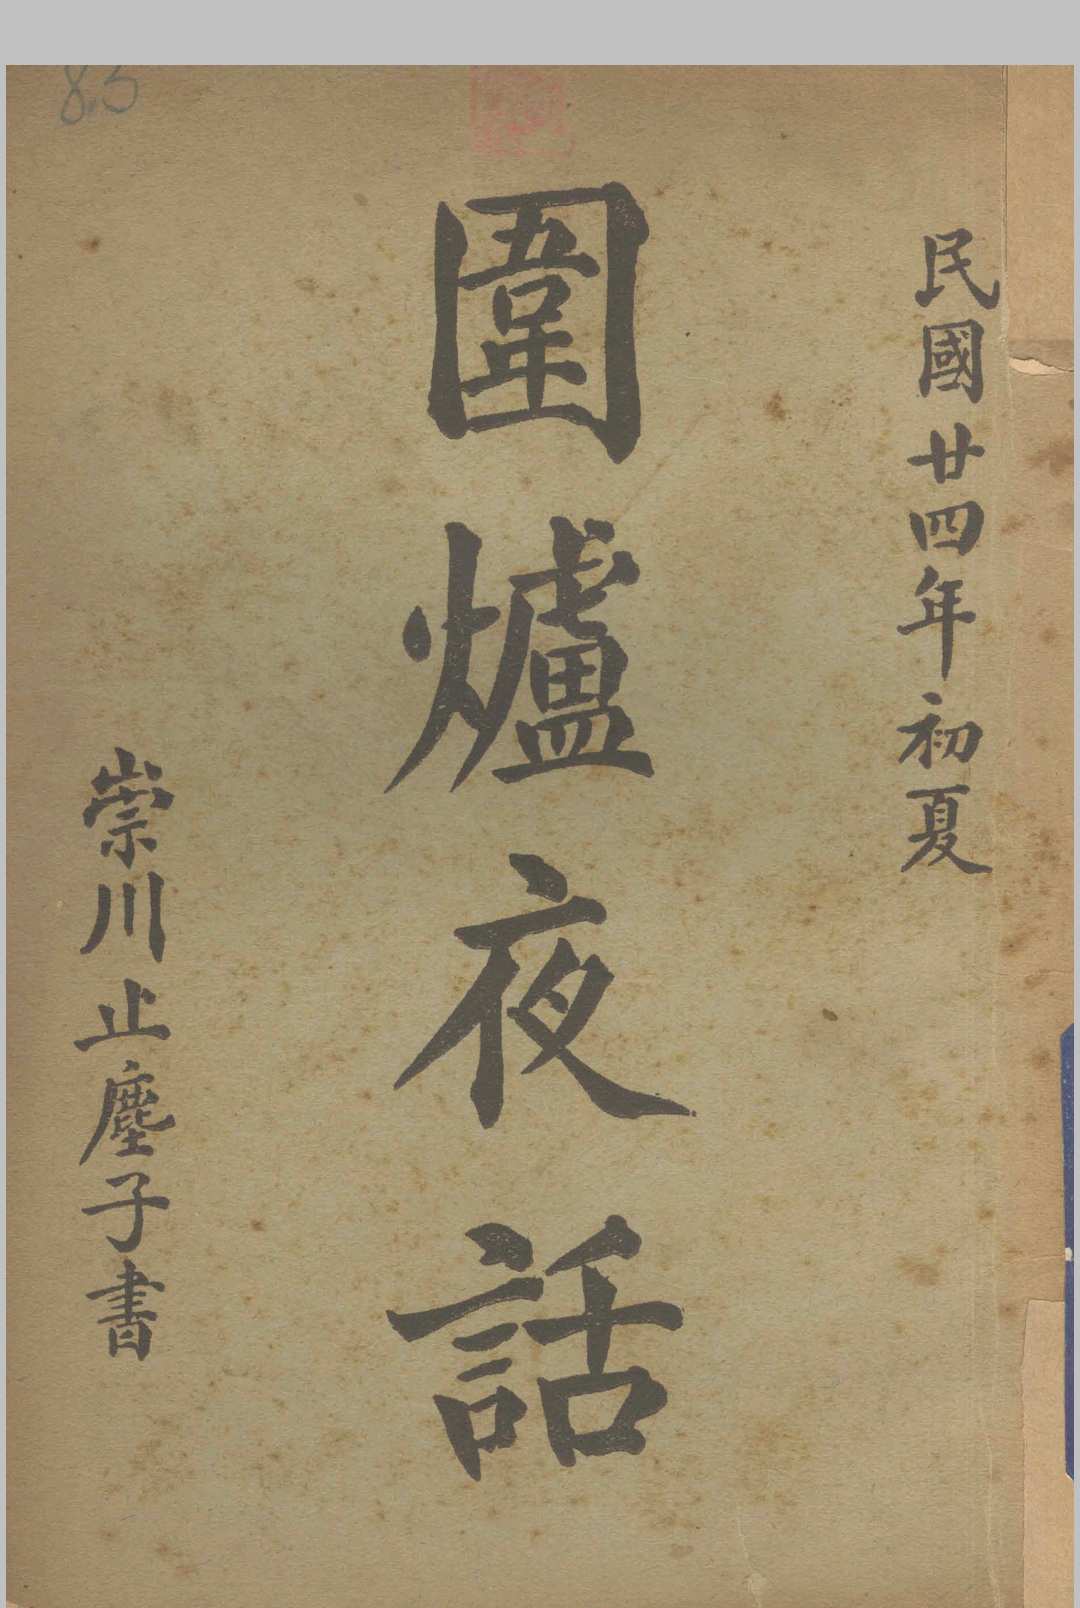 民國廿四年初夏
圍爐夜話
崇川止塵子書